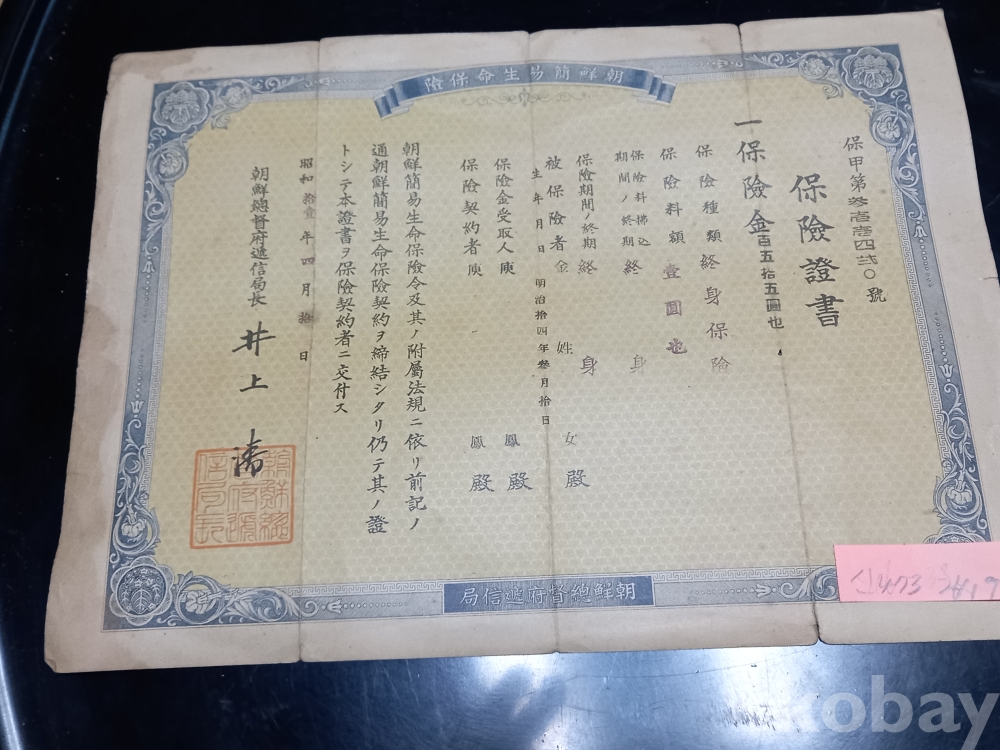 朝鮮簡易生命保險
保甲第參壱壱四弐〇號
保險證書
一保險金百五拾五圓也
保險種類終身保險
保險料額壹圓也
保險料拂込期間ノ終期終身
保險期間ノ終期終身
被保險者金姓女殿
生年月日明治拾四年參月拾日
保險金受取人庾鳳殿
保險契約者庾鳳殿
朝鮮簡易生命保險令及其ノ附屬法規ニ依リ前記ノ
通朝鮮簡易生命保險契約ヲ締結シタリ仍テ其ノ證
トシテ本證書ヲ保險契約者ニ交付ス
昭和拾壹年四月拾日
朝鮮總督府遞信局長
井上清
朝鮮總督府遞信局
obay